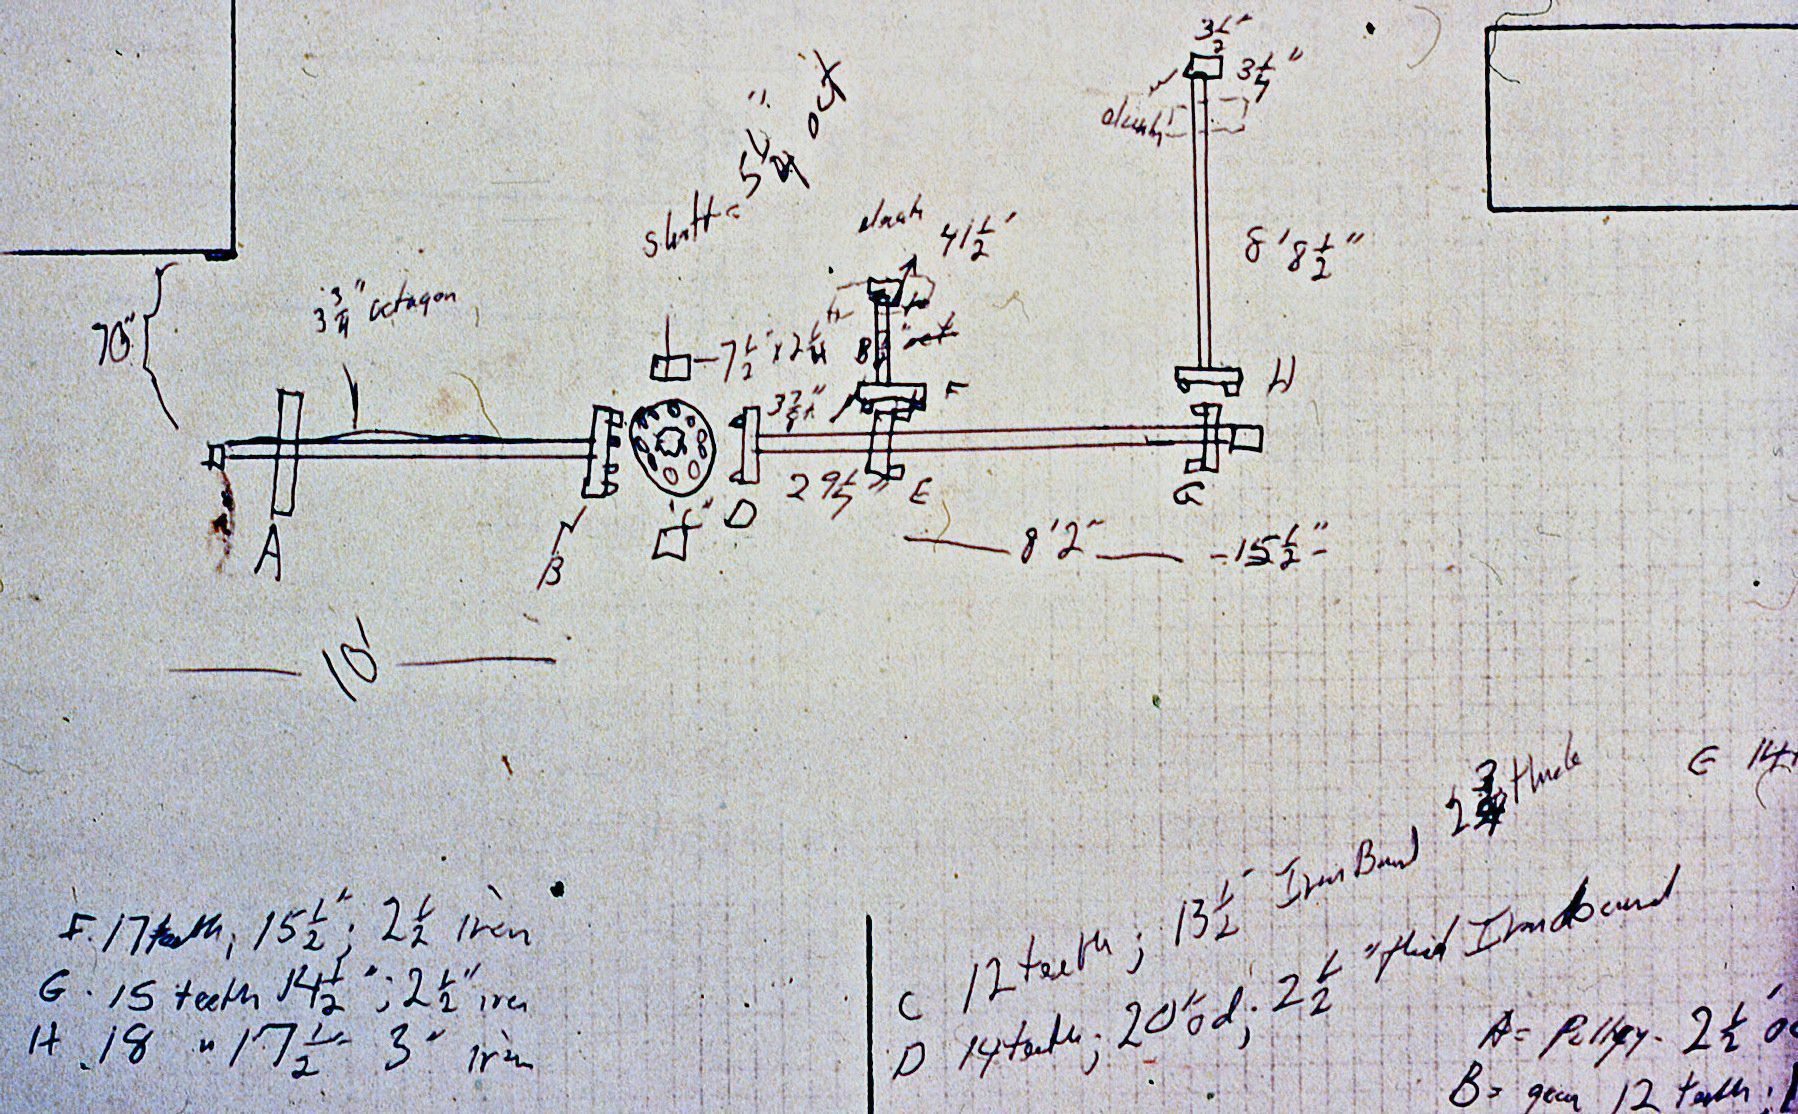 3½"
3¼"
5¼" out
41½"
8'8½"
70"
3¾" octagon
7½" x 2¼
3⅞"
F
H
29½"
E
D
G
A
B
8'2"
15½"
10'
2¾ thick
F. 17 teeth; 15½"; 2½ iron
G. 15 teeth 14½"; 2½" iron
H. 18 " 17½" 3" iron
C 12 teeth; 13½" Iron Band
D 14 teeth; 20" od; 2½" thick Iron band
A = Pulley. 2½'
B = gear 12 teeth.